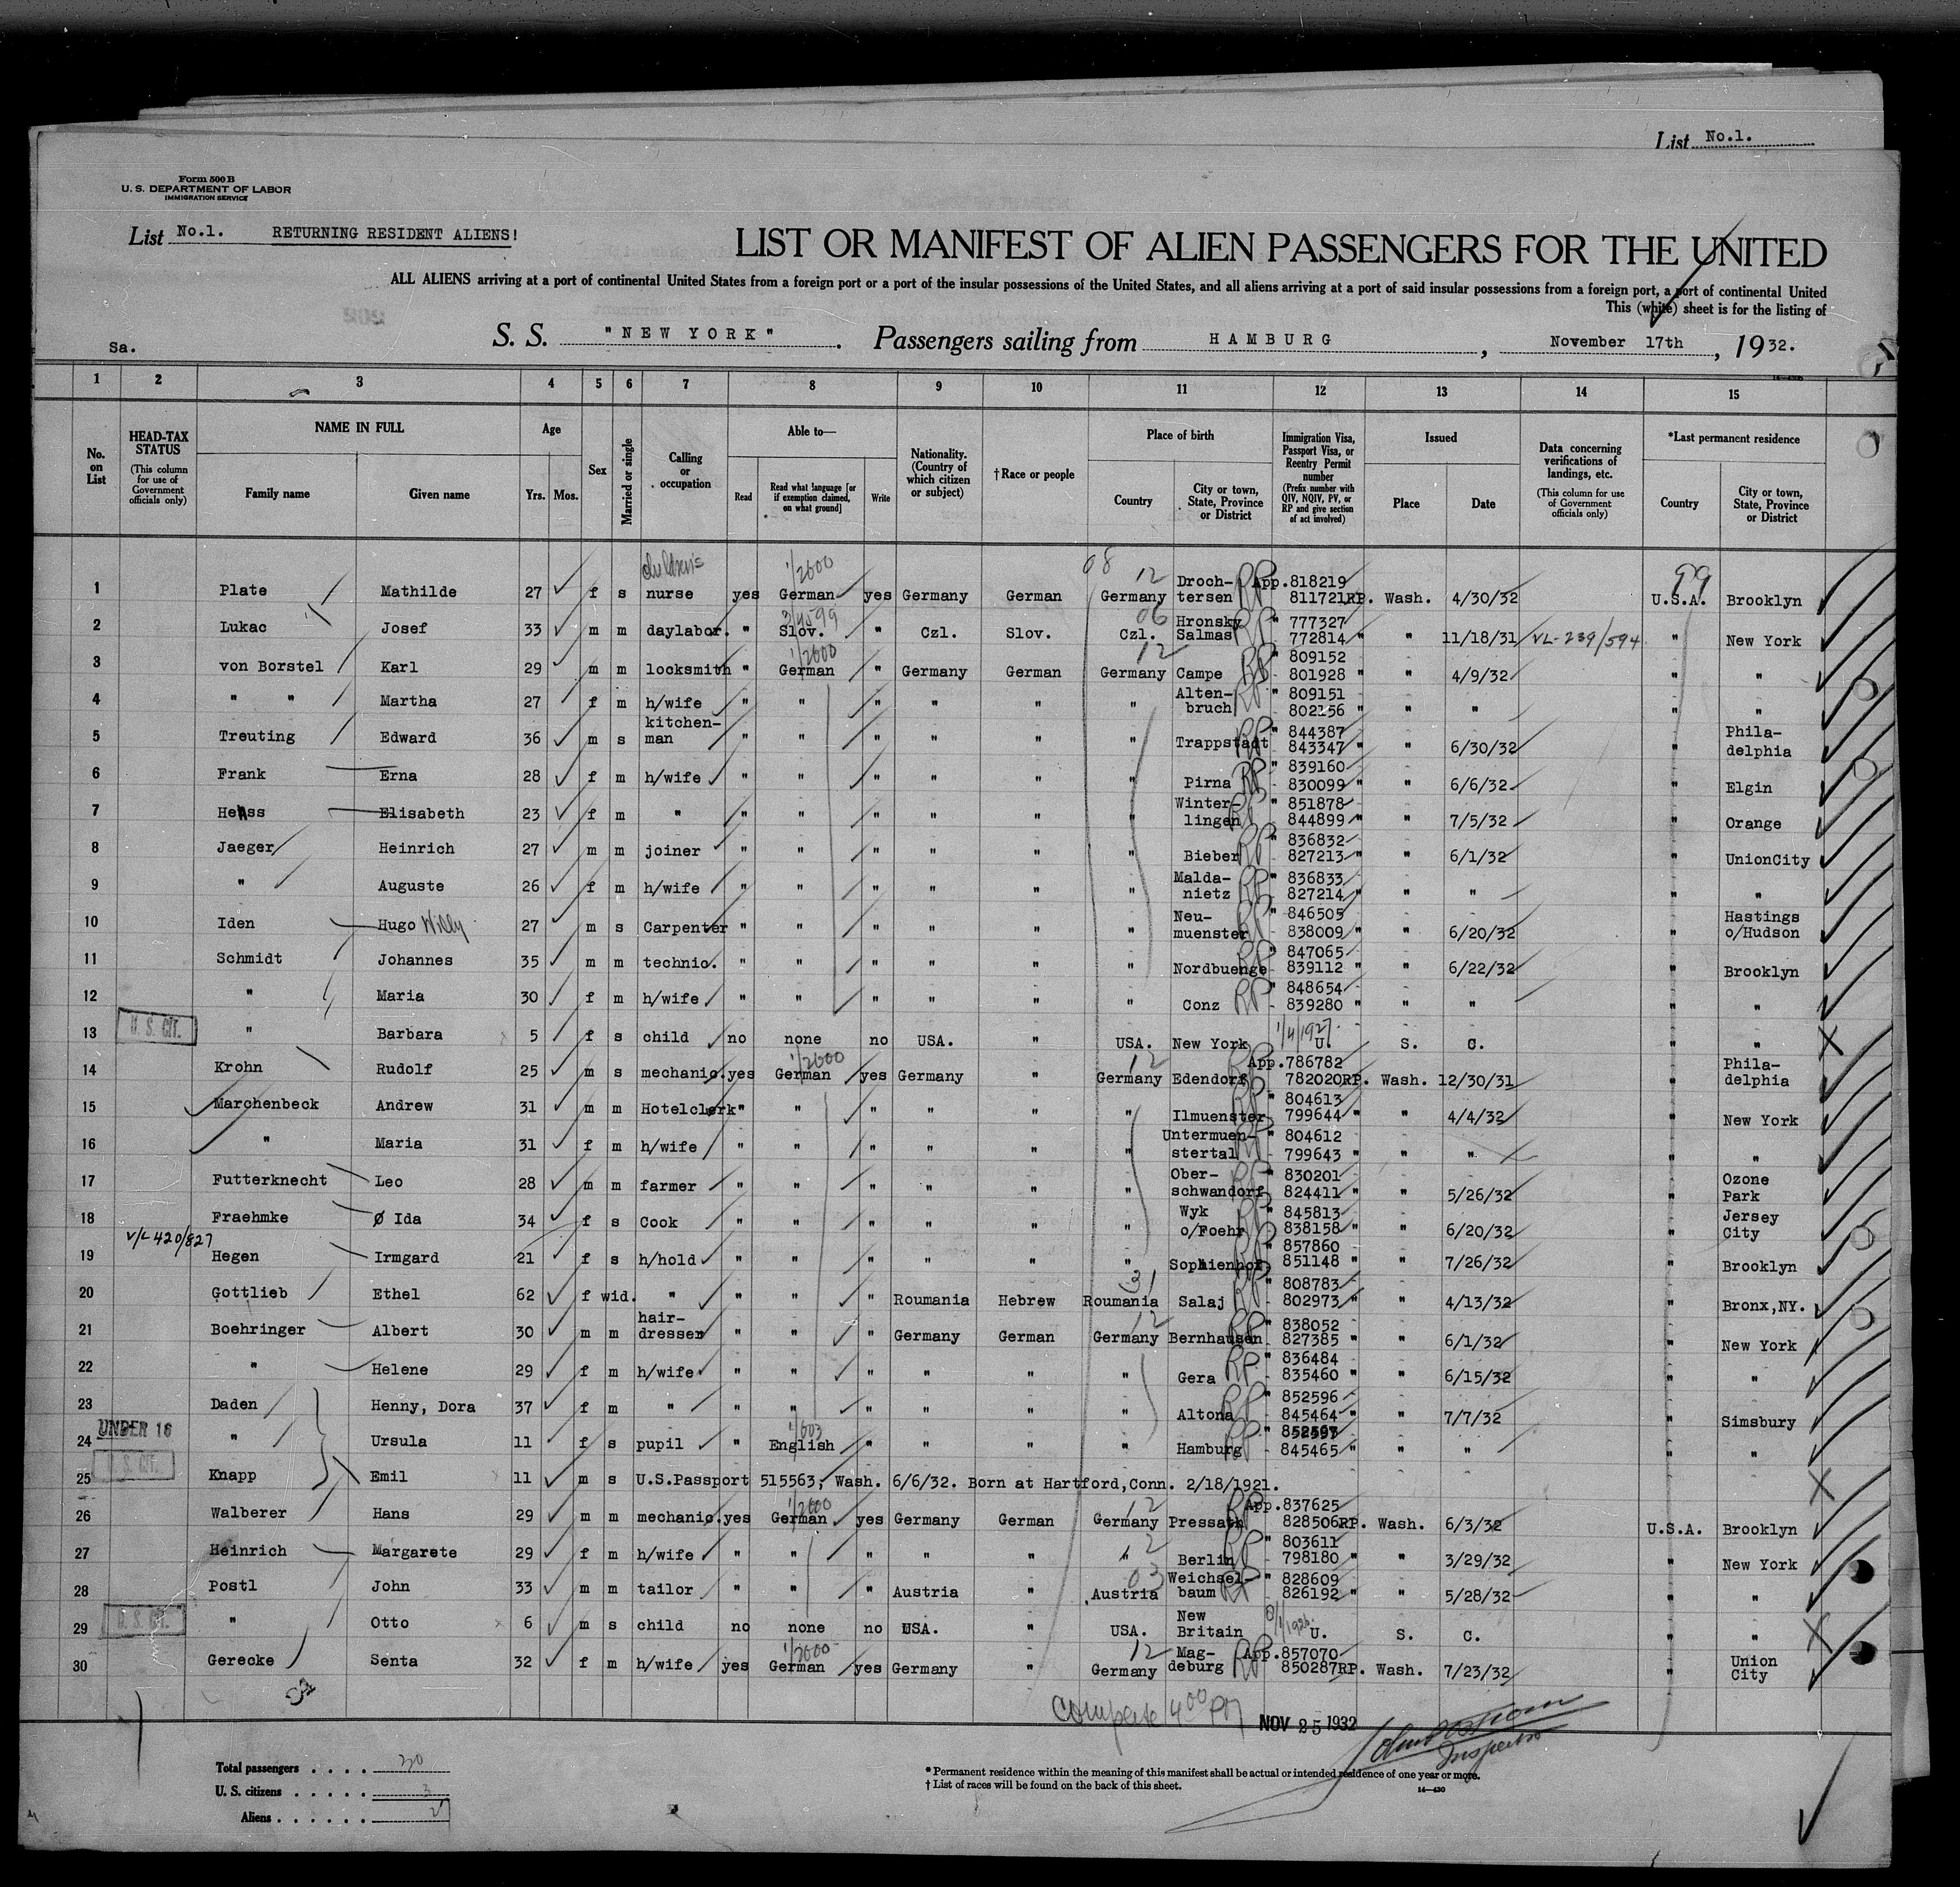 List No.1.
Form 500 B
U. S. DEPARTMENT OF LABOR
IMMIGRATION SERVICE
List No.1. RETURNING RESIDENT ALIENS!
LIST OR MANIFEST OF ALIEN PASSENGERS FOR THE UNITED
ALL ALIENS arriving at a port of continental United States from a foreign port or a port of the insular possessions of the United States, and all aliens arriving at a port of said insular possessions from a foreign port, a port of continental United
This (white) sheet is for the listing of
Sa. S. S. "NEW YORK". Passengers sailing from HAMBURG, November 17th, 1932.
1 2 3 4 5 6 7 8 9 10 11 12 13 14 15
No. on List
HEAD-TAX STATUS (This column for use of Government officials only)
NAME IN FULL
Family name
Given name
Age
Yrs. Mos.
Sex
Married or single
Calling or occupation
Able to—
Read
Read what language [or if exemption claimed, on what ground]
Write
Nationality. (Country of which citizen or subject)
†Race or people
Place of birth
Country
City or town, State, Province or District
Immigration Visa, Passport Visa, or Reentry Permit number (Prefix number with QIV, NQIV, PV, or RP and give section of act involved)
Issued
Place
Date
Data concerning verifications of landings, etc. (This column for use of Government officials only)
*Last permanent residence
Country
City or town, State, Province or District
1 Plate Mathilde 27 f s children's nurse yes German 1/2000 yes Germany German Germany 12 Droch-tersen RP App.818219 811721RP. Wash. 4/30/32 99 U.S.A. Brooklyn
2 Lukac Josef 33 m m daylabor. " Slov. " Czl. Slov. Czl. 06 Hronsky Salmas RP " 777327 772814 " " 11/18/31 VL-239/594 " New York
3 von Borstel Karl 29 m m locksmith " German 1/2000 " Germany German Germany 12 Campe RP " 809152 801928 " " 4/9/32 " "
4 " " Martha 27 f m h/wife " " " " " " Alten-bruch RP " 809151 802156 " " " " "
5 Treuting Edward 36 m s kitchen-man " " " " " " Trappstadt RP " 844387 843347 " " 6/30/32 " Phila-delphia
6 Frank Erna 28 f m h/wife " " " " " " Pirna RP " 839160 830099 " " 6/6/32 " Elgin
7 Heass Elisabeth 23 f m " " " " " " " Winter-lingen RP " 851878 844899 " " 7/5/32 " Orange
8 Jaeger Heinrich 27 m m joiner " " " " " " Bieber RP " 836832 827213 " " 6/1/32 " UnionCity
9 " Auguste 26 f m h/wife " " " " " " Malda-nietz RP " 836833 827214 " " " " "
10 Iden Hugo Willy 27 m s Carpenter " " " " " " Neu-muenster RP " 846505 838009 " " 6/20/32 " Hastings o/Hudson
11 Schmidt Johannes 35 m m technic. " " " " " " Nordbuenge RP " 847065 839112 " " 6/22/32 " Brooklyn
12 " Maria 30 f m h/wife " " " " " " Conz RP " 848654 839280 " " " " "
13 U. S. CIT. " Barbara 5 f s child no none no USA. " USA. New York 1/4/1927 U. S. C. " "
14 Krohn Rudolf 25 m s mechanic. yes German 1/2000 yes Germany " Germany 12 Edendorf RP App.786782 782020RP. Wash. 12/30/31 " Phila-delphia
15 Marchenbeck Andrew 31 m m Hotelclerk " " " " " " Ilmuenster RP " 804613 799644 " " 4/4/32 " New York
16 " Maria 31 f m h/wife " " " " " " Untermuen-stertal RP " 804612 799643 " " " " "
17 Futterknecht Leo 28 m m farmer " " " " " " Ober-schwandorf RP " 830201 824411 " " 5/26/32 " Ozone Park
18 Fraehmke Ø Ida 34 f s Cook " " " " " " Wyk o/Foehr RP " 845813 838158 " " 6/20/32 " Jersey City
V/L 420/827
19 Hegen Irmgard 21 f s h/hold " " " " " " Sophienhof. RP " 857860 851148 " " 7/26/32 " Brooklyn
20 Gottlieb Ethel 62 f wid. " " " " Roumania Hebrew Roumania 31 Salaj RP " 808783 802973 " " 4/13/32 " Bronx,NY.
21 Boehringer Albert 30 m m hair-dresser " " " Germany German Germany 12 Bernhausen RP " 838052 827385 " " 6/1/32 " New York
22 " Helene 29 f m h/wife " " " " " " Gera RP " 836484 835460 " " 6/15/32 " "
23 Daden Henny, Dora 37 f m " " " " " " " Altona RP " 852596 845464 " " 7/7/32 " Simsbury
UNDER 16
24 " Ursula 11 f s pupil " English 1/603 " " " " Hamburg RP " 852597 845465 " " " " "
25 U. S. CIT. Knapp Emil 11 m s U.S.Passport 515563, Wash. 6/6/32. Born at Hartford,Conn. 2/18/1921.
26 Walberer Hans 29 m m mechanic. yes German 1/2000 yes Germany German Germany 12 Pressath RP App.837625 828506RP. Wash. 6/3/32 U.S.A. Brooklyn
27 Heinrich Margarete 29 f m h/wife " " " " " " Berlin RP " 803611 798180 " " 3/29/32 " New York
28 Postl John 33 m m tailor " " " Austria " Austria 03 Weichsel-baum RP " 828609 826192 " " 5/28/32 " "
29 U. S. CIT. " Otto 6 m s child no none no USA. " USA. New Britain U. S. C. " "
30 Gerecke Senta 32 f m h/wife yes German 1/2000 yes Germany " Germany 12 Mag-deburg RP App.857070 850287RP. Wash. 7/23/32 " Union City
4 00 PM NOV 25 1932
Inspector
Total passengers . . . . 30
U. S. citizens . . . . . 3
Aliens . . . . . . 27
* Permanent residence within the meaning of this manifest shall be actual or intended residence of one year or more.
† List of races will be found on the back of this sheet.
14—430